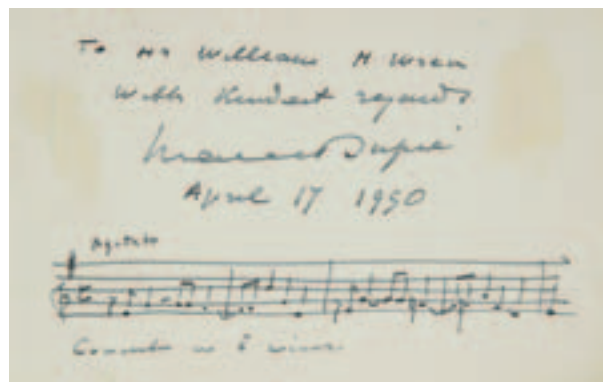 To Mr William H. Wren
With Kindest regards
Marcel Dupré
April 17 1950
Agitato
Concerto in E minor